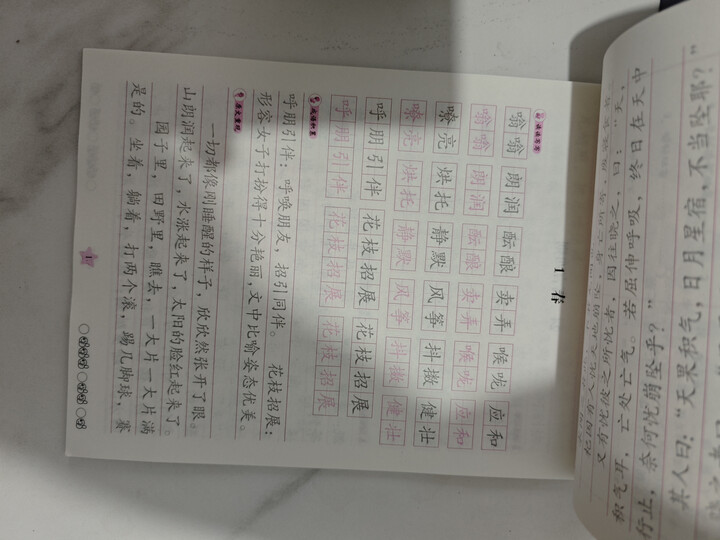 1 春
读读写写
嗡嗡 朗润 酝酿 卖弄 喉咙 应和
嗡嗡 朗润 酝酿 卖弄 喉咙 应和
嘹亮 烘托 静默 风筝 抖擞 健壮
嘹亮 烘托 静默 风筝 抖擞 健壮
呼朋引伴 花枝招展 花枝招展
呼朋引伴 花枝招展 花枝招展
成语积累
呼朋引伴:呼唤朋友,招引同伴。 花枝招展:
形容女子打扮得十分艳丽,文中比喻姿态优美。
课文重现
一切都像刚睡醒的样子,欣欣然张开了眼。
山朗润起来了,水涨起来了,太阳的脸红起来了。
园子里,田野里,瞧去,一大片一大片满
是的。坐着,躺着,打两个滚,踢几脚球,赛
1
其人曰:“天果积气,日月星宿,不当坠耶?”
行止,奈何忧崩坠乎?”
积气耳,亡处亡气。若屈伸呼吸,终日在天中
又有忧彼之所忧者,因往晓之,曰:“天,